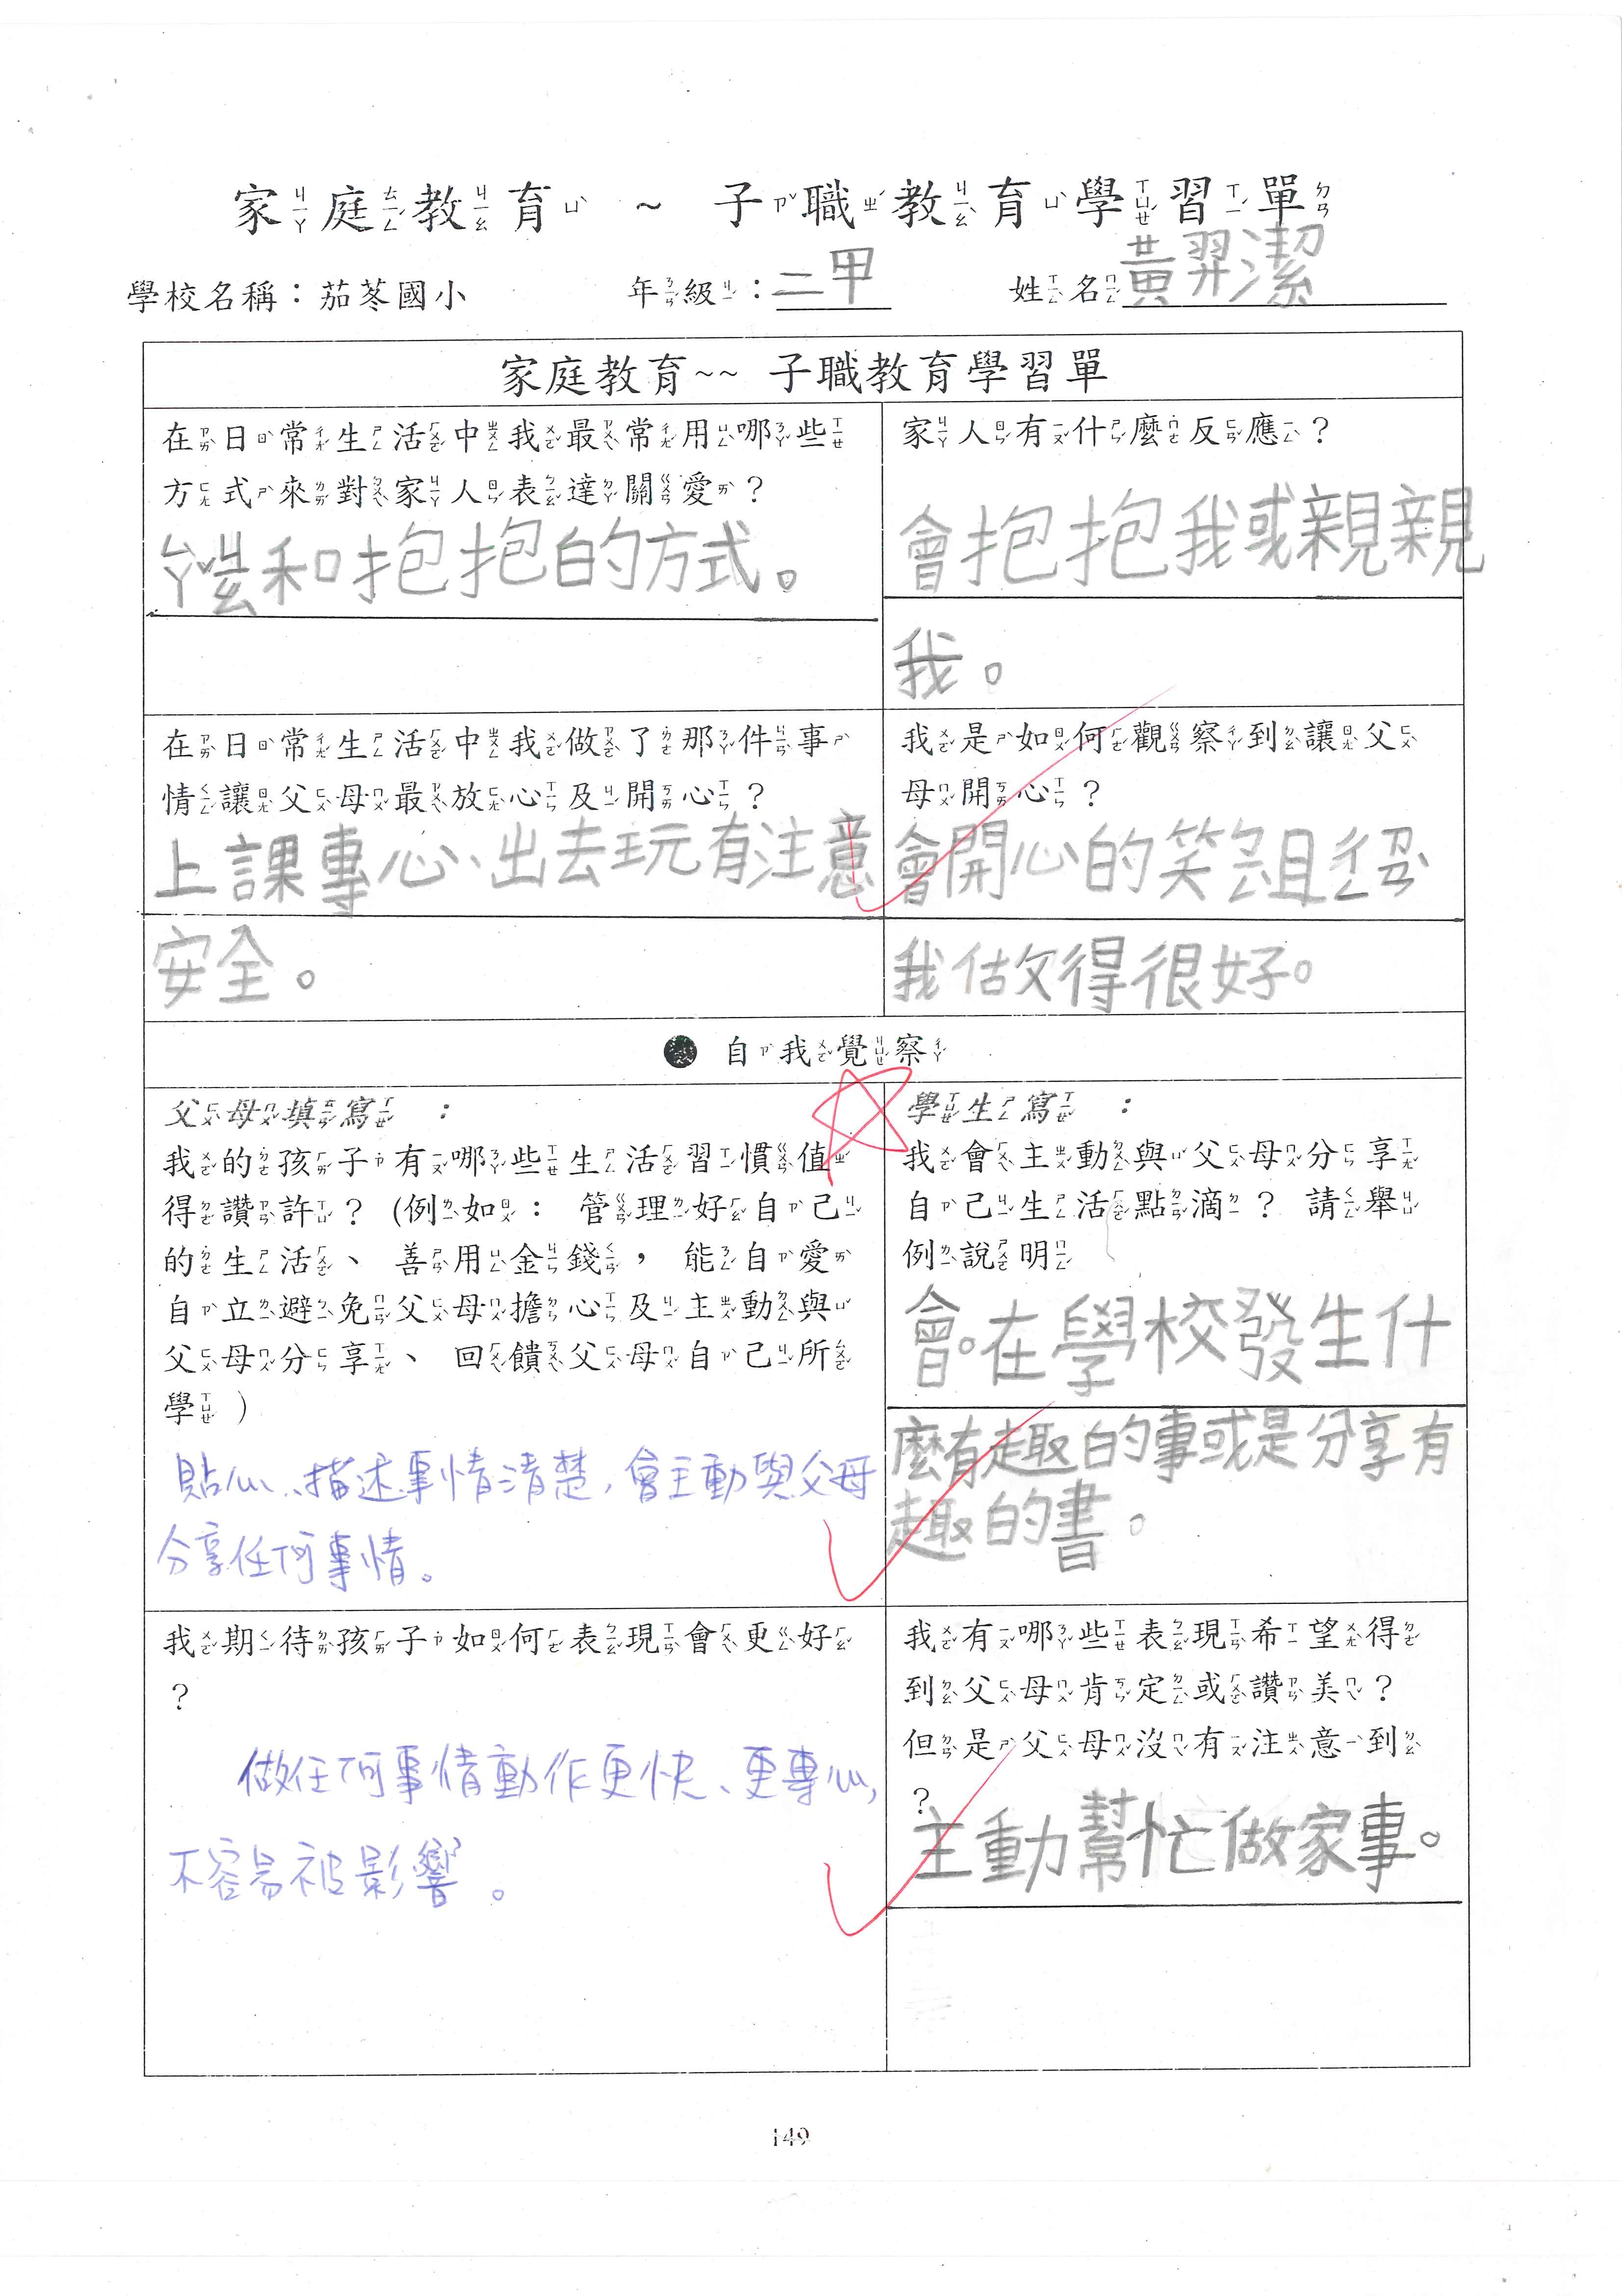 家庭教育 ~ 子職教育學習單
學校名稱：茄苳國小 年級：二甲 姓名 黃羿潔
家庭教育~~ 子職教育學習單
在日常生活中我最常用哪些
方式來對家人表達關愛？
ㄚ和抱抱的方式。
家人有什麼反應？
會抱抱我或親親
我。
在日常生活中我做了那件事
情讓父母最放心及開心？
上課專心、出去玩有注意
安全。
我是如何觀察到讓父
母開心？
會開心的笑
我做得很好。
自我覺察
父母填寫：
我的孩子有哪些生活習慣值
得讚許？(例如： 管理好自己
的生活、善用金錢，能自愛
自立避免父母擔心及主動與
父母分享、回饋父母自己所
學)
貼心、描述事情清楚，會主動與父母
分享任何事情。
學生寫：
我會主動與父母分享
自己生活點滴？請舉
例說明
會。在學校發生什
麼有趣的事或是分享有
趣的書。
我期待孩子如何表現會更好
？
做任何事情動作更快、更專心，
不容易被影響。
我有哪些表現希望得
到父母肯定或讚美？
但是父母沒有注意到
？
主動幫忙做家事。
149